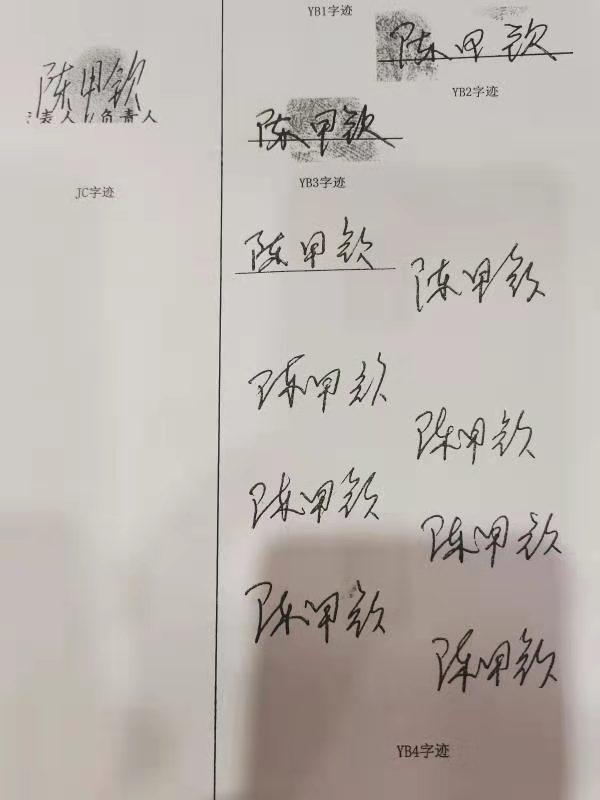 陈甲钦
表人/负责人
JC字迹
YB1字迹
陈甲钦
YB2字迹
陈甲钦
YB3字迹
陈甲钦
陈甲钦
陈甲钦
陈甲钦
陈甲钦
陈甲钦
陈甲钦
陈甲钦
YB4字迹